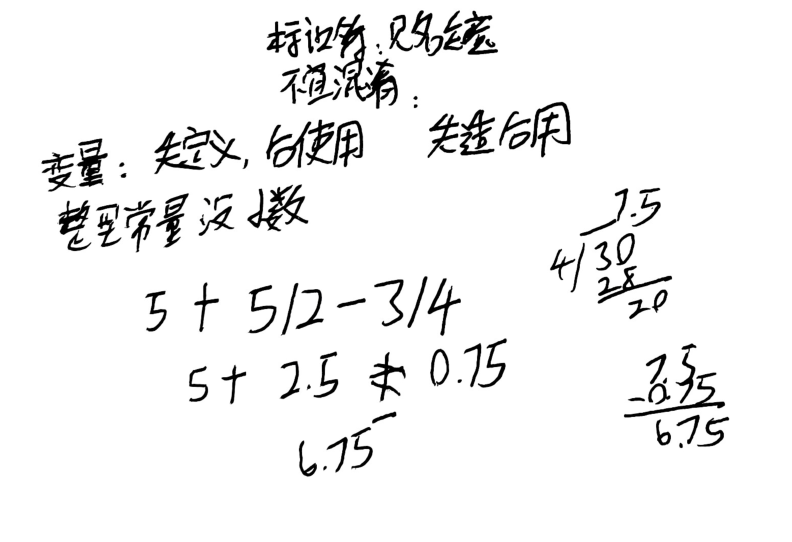 标识符:见名知意
不宜混淆:
变量:先定义,后使用 先造后用
整型常量没小数
5+5/2-3/4
5+2.5-0.75
6.75
7.5
4 30
28
20
7.5
-0.75
6.75